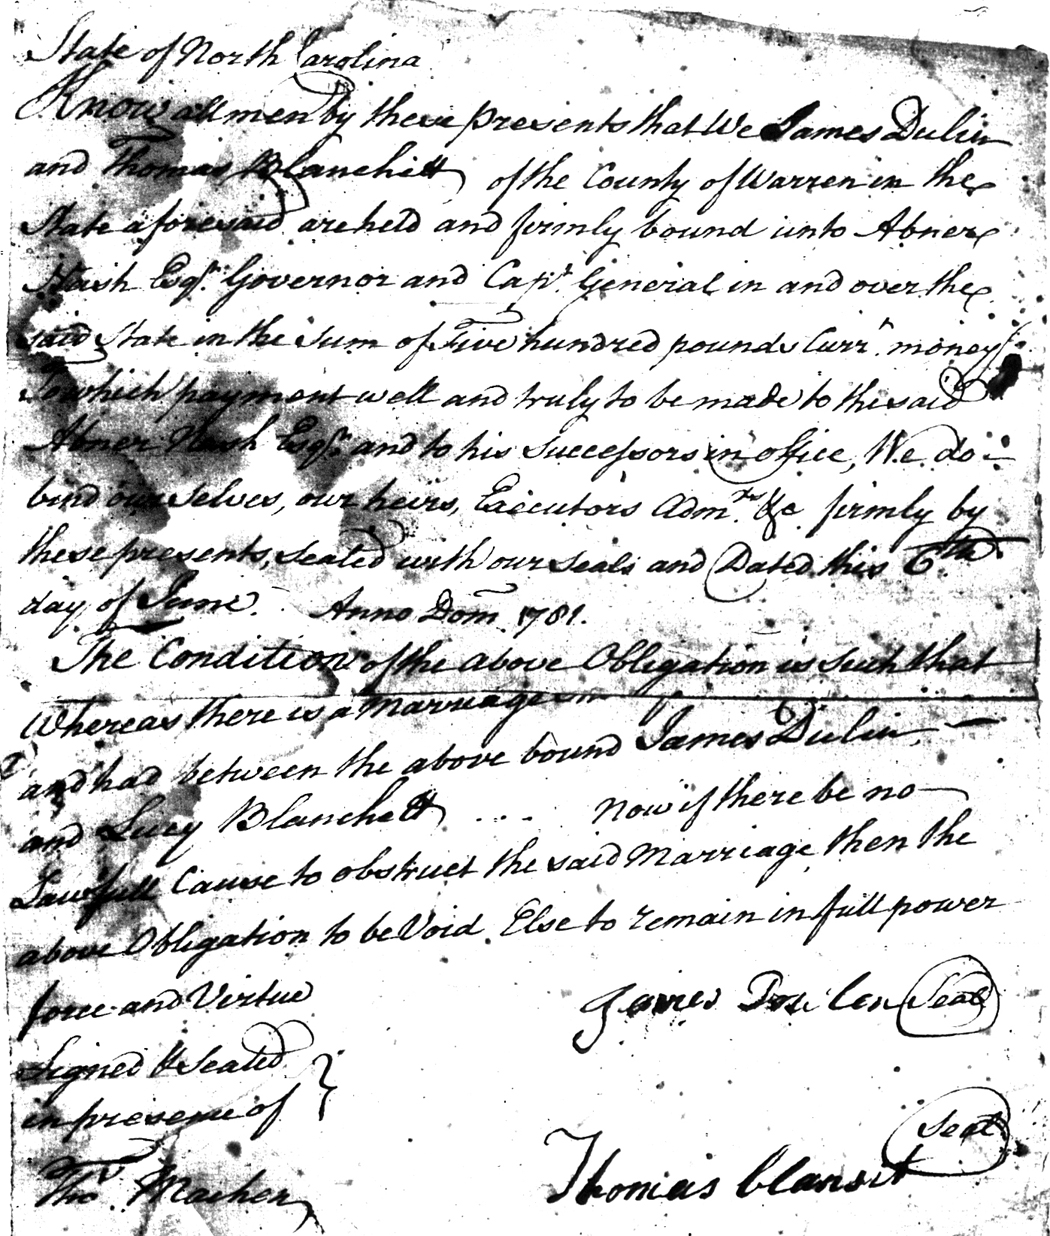 State of North Carolina
Know all men by these presents that We James Dulin
and Thomas Blanchett of the County of Warren in the
State aforesaid are held and firmly bound unto Abner
Nash Esqr. Governor and Capt. General in and over the
said State in the Sum of Five hundred pounds Currt. money
To which payment well and truly to be made to the said
Abner Nash Esqr. and to his Successors in office, We do
bind our selves, our heirs, Executors Admrs. &c firmly by
these presents, sealed with our seals and Dated this 6th
day of June. Anno Dom 1781.
The Condition of the above Obligation is such that
Whereas there is a Marriage
and had between the above bound James Dulin
and Lucy Blanchett .... Now if there be no
Lawfull Cause to obstruct the said Marriage then the
above Obligation to be Void. Else to remain in full power
force and Virtue
James Dulen Seal
Signed & Sealed
in presence of
Thomas blansit Seal
Thos. Machen